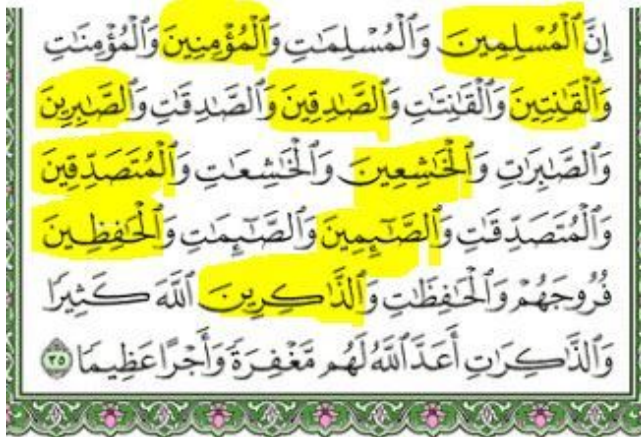 إِنَّ ٱلْمُسْلِمِينَ وَٱلْمُسْلِمَٰتِ وَٱلْمُؤْمِنِينَ وَٱلْمُؤْمِنَٰتِ
وَٱلْقَٰنِتِينَ وَٱلْقَٰنِتَٰتِ وَٱلصَّٰدِقِينَ وَٱلصَّٰدِقَٰتِ وَٱلصَّٰبِرِينَ
وَٱلصَّٰبِرَٰتِ وَٱلْخَٰشِعِينَ وَٱلْخَٰشِعَٰتِ وَٱلْمُتَصَدِّقِينَ
وَٱلْمُتَصَدِّقَٰتِ وَٱلصَّٰٓئِمِينَ وَٱلصَّٰٓئِمَٰتِ وَٱلْحَٰفِظِينَ
فُرُوجَهُمْ وَٱلْحَٰفِظَٰتِ وَٱلذَّٰكِرِينَ ٱللَّهَ كَثِيرًا
وَٱلذَّٰكِرَٰتِ أَعَدَّ ٱللَّهُ لَهُم مَّغْفِرَةً وَأَجْرًا عَظِيمًا ٣٥